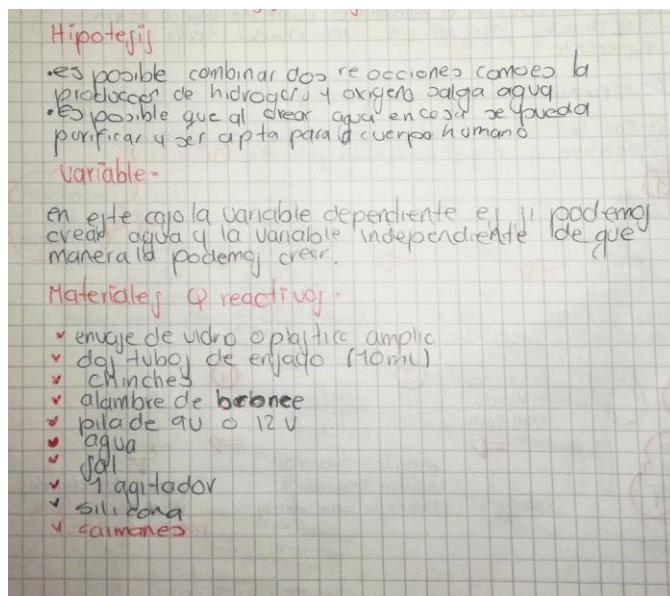 Hipotesis
•es posible combinar dos reacciones como es la
produccion de hidrogeno y oxigeno salga agua
•Es posible que al crear agua en casa se pueda
purificar y ser apta para el cuerpo humano
variable-
en este caso la variable dependiente es si podemos
crear agua y la variable independiente de que
manera la podemos crear.
Materiales y reactivos-
envase de vidro o plastico amplio
dos tubos de ensado (10mL)
chinches
alambre de bronce
pila de 9V o 12 V
agua
sal
1 agitador
silicona
caimanes